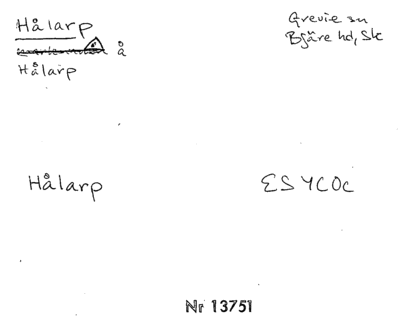 Hålarp
Grevie sn
å
Bjäre hd, Sk
Hålarp
Hålarp
ESYCOc
Nr 13751